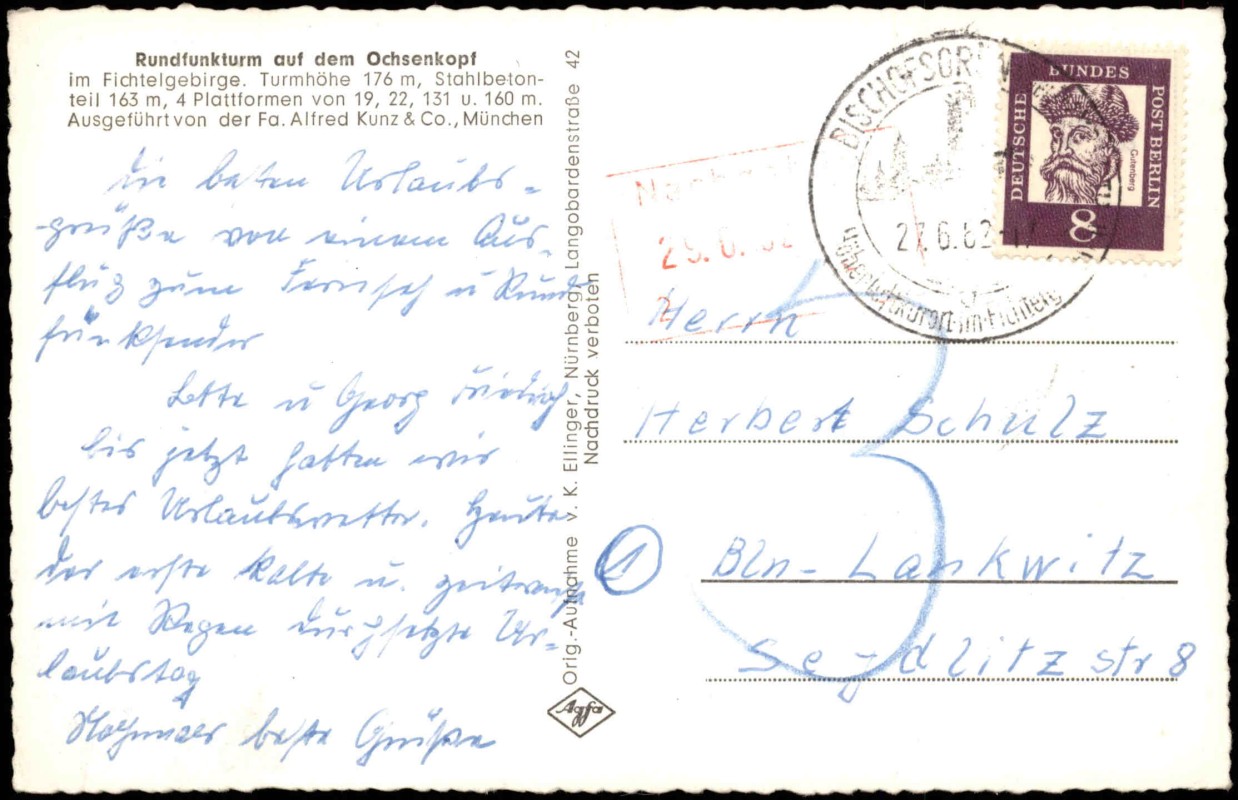 Rundfunkturm auf dem Ochsenkopf
im Fichtelgebirge. Turmhöhe 176 m, Stahlbeton-
teil 163 m, 4 Plattformen von 19, 22, 131 u. 160 m.
Ausgeführt von der Fa. Alfred Kunz & Co., München
Die besten Urlaubs-
grüße von einem Aus-
flug zum Fernseh u Rund
funksender
Lotte u Georg Friedrich
bis jetzt hatten wir
bestes Urlaubswetter. Heute
der erste kalte u. zeitweise
mit Regen durchsetzte Ur-
laubstag
Nochmals beste Grüße
Orig.-Aufnahme v. K. Ellinger, Nürnberg, Langobardenstraße 42
Nachdruck verboten
Agfa
Nachg
2
BISCHOFSGRÜN
27.6.62-17
Höhenluftkurort-im-Fichtelg
DEUTSCHE BUNDES POST BERLIN
Gutenberg
8
Herrn
Herbert Schulz
1
Bln-Lankwitz
Seydlitzstr 8
3